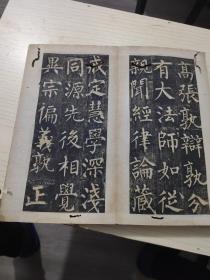 高張孰辯孰分
有大法師如從
親聞經律論藏
戒定慧學深淺
同源先後相覺
異宗偏義孰正